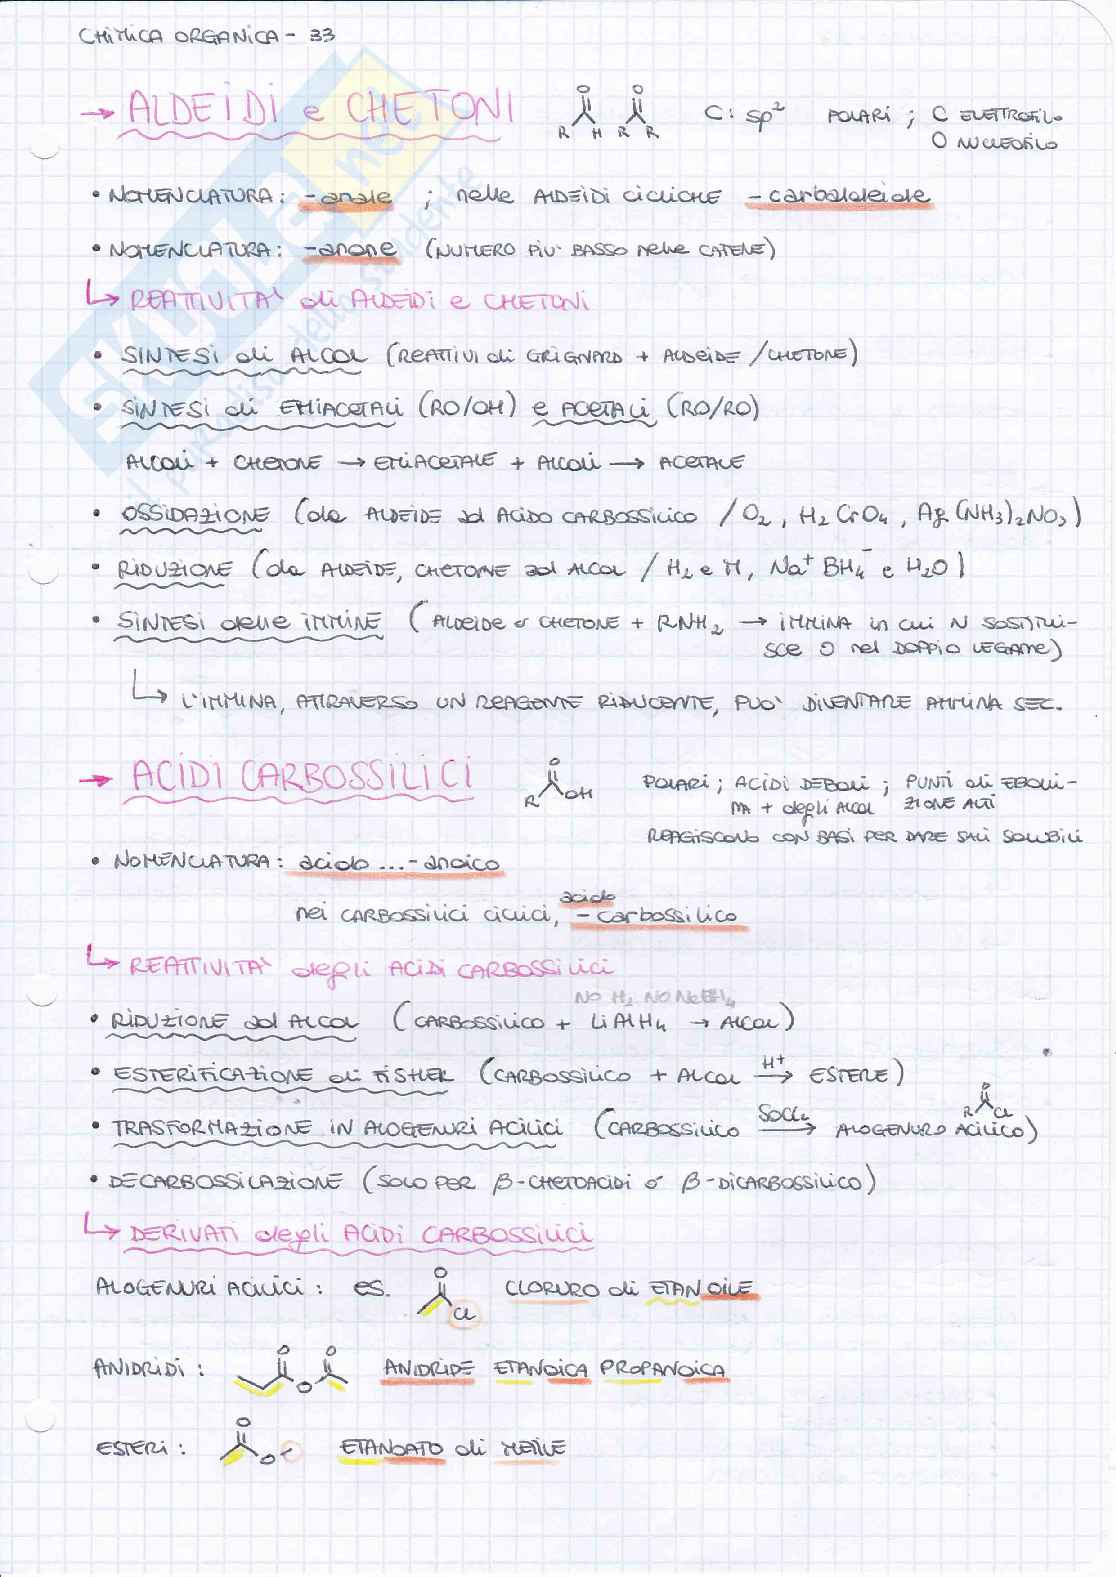 CHIMICA ORGANICA - 33
→ ALDEIDI e CHETONI
O O
R H R R
C: sp² POLARI ; C ELETTROFILO
O NUCLEOFILO
• NOMENCLATURA: -anale ; nelle ALDEIDI CICLICHE -carbaldeide
• NOMENCLATURA: -anone (NUMERO PIU' BASSO nelle CATENE)
↳ REATTIVITA' di ALDEIDI e CHETONI
• SINTESI di ALCOL (REATTIVI di GRIGNARD + ALDEIDE / CHETONE)
• SINTESI di EMIACETALI (RO/OH) e ACETALI (RO/RO)
ALCOLI + CHETONE → EMIACETALE + ALCOLI → ACETALE
• OSSIDAZIONE (da ALDEIDE ad ACIDO CARBOSSILICO / O₂, H₂CrO₄, Ag(NH₃)₂NO₃)
• RIDUZIONE (da ALDEIDE, CHETONE ad ALCOL / H₂ e M, Na⁺ BH₄⁻ e H₂O)
• SINTESI delle IMMINE (ALDEIDE o CHETONE + RNH₂ → IMMINA in cui N SOSTITUI-
SCE O nel DOPPIO LEGAME)
↳ L'IMMINA, ATTRAVERSO UN REAGENTE RIDUCENTE, PUO' DIVENTARE AMMINA SEC.
→ ACIDI CARBOSSILICI
O
R OH
POLARI ; ACIDI DEBOLI ; PUNTI di EBOLLI-
MA + degli ALCOL ZIONE ALTI
REAGISCONO CON BASI PER DARE SALI SOLUBILI
• NOMENCLATURA: acido ...-anoico
nei CARBOSSILICI CICLICI, acido -carbossilico
↳ REATTIVITA' degli ACIDI CARBOSSILICI
NO H₂ NO NaBH₄
• RIDUZIONE ad ALCOL (CARBOSSILICO + LiAlH₄ → ALCOL)
• ESTERIFICAZIONE di FISHER (CARBOSSILICO + ALCOL H⁺→ ESTERE)
O
R Cl
• TRASFORMAZIONE IN ALOGENURI ACILICI (CARBOSSILICO SOCl₂→ ALOGENURO ACILICO)
• DECARBOSSILAZIONE (SOLO PER β-CHETOACIDI o β-DICARBOSSILICO)
↳ DERIVATI degli ACIDI CARBOSSILICI
O
ALOGENURI ACILICI : es. Cl CLORURO di ETANOILE
O O
ANIDRIDI : O ANIDRIDE ETANOICA PROPANOICA
O
ESTERI : O ETANOATO di METILE
SKUOLA.net
il paradiso dello studente